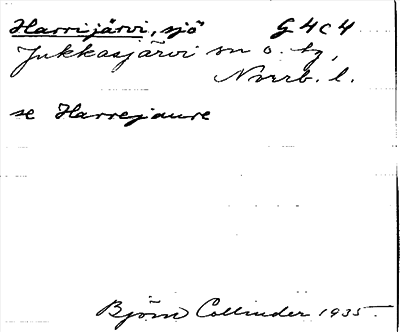 Harrijärvi, sjö G4c4
Jukkasjärvi sn o. tg,
Norrb. l.
se Harrejaure
Björn Collinder 1935.